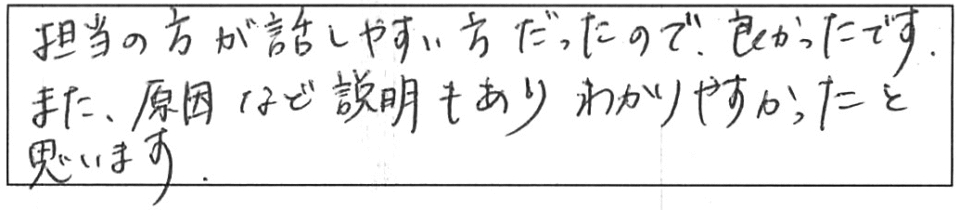 担当の方が話しやすい方だったので、良かったです.
また、原因など説明もありわかりやすかったと
思います.